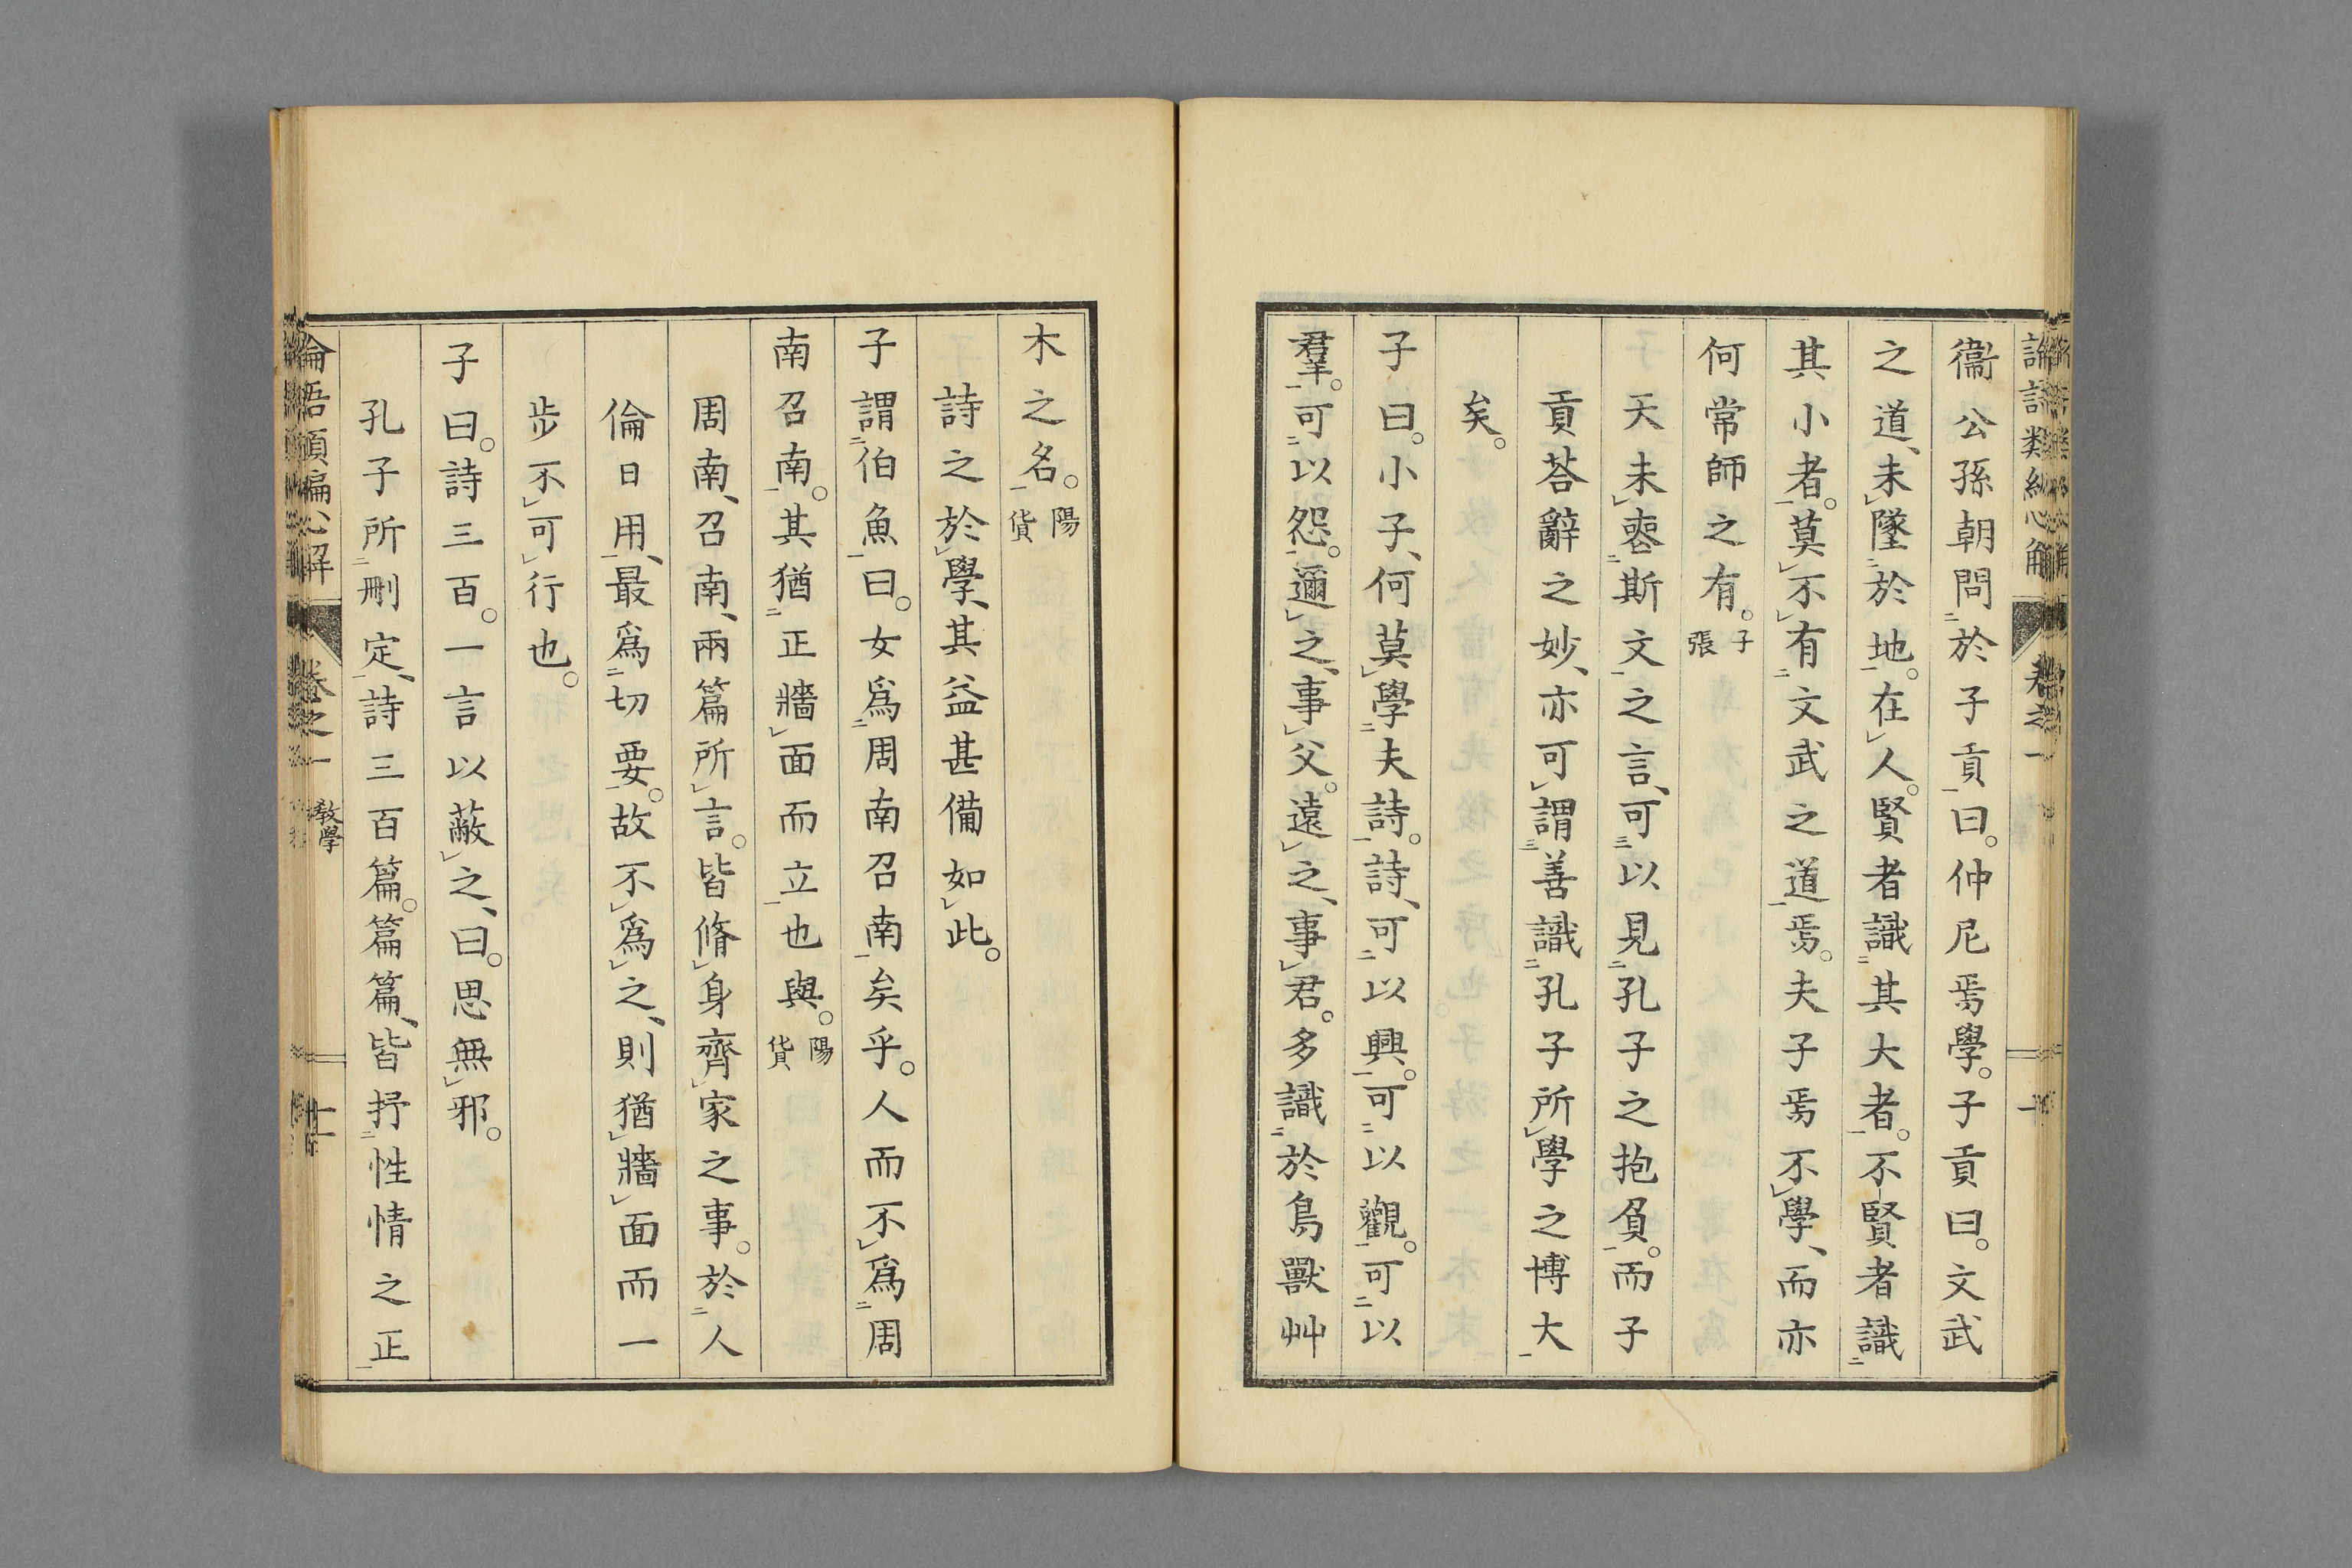 衞公孫朝問於子貢曰。仲尼焉學。子貢曰。文武
之道、未墜於地。在人。賢者識其大者。不賢者識
其小者。莫不有文武之道焉。夫子焉不學、而亦
何常師之有。子張
天未喪斯文之言、可以見孔子之抱負。而子
貢荅辭之妙、亦可謂善識孔子所學之博大
矣。
子曰。小子、何莫學夫詩。詩、可以興。可以觀。可以
羣。可以怨。邇之、事父。遠之、事君。多識於鳥獸艸
木之名。陽貨
詩之於學、其益甚備如此。
子謂伯魚曰。女爲周南召南矣乎。人而不爲周
南召南。其猶正牆面而立也與。陽貨
周南、召南、兩篇所言。皆脩身齊家之事。於人
倫日用、最爲切要。故不爲之、則猶牆面而一
步不可行也。
子曰。詩三百。一言以蔽之、曰。思無邪。
孔子所刪定、詩三百篇。篇篇、皆抒性情之正
卷之一 教學